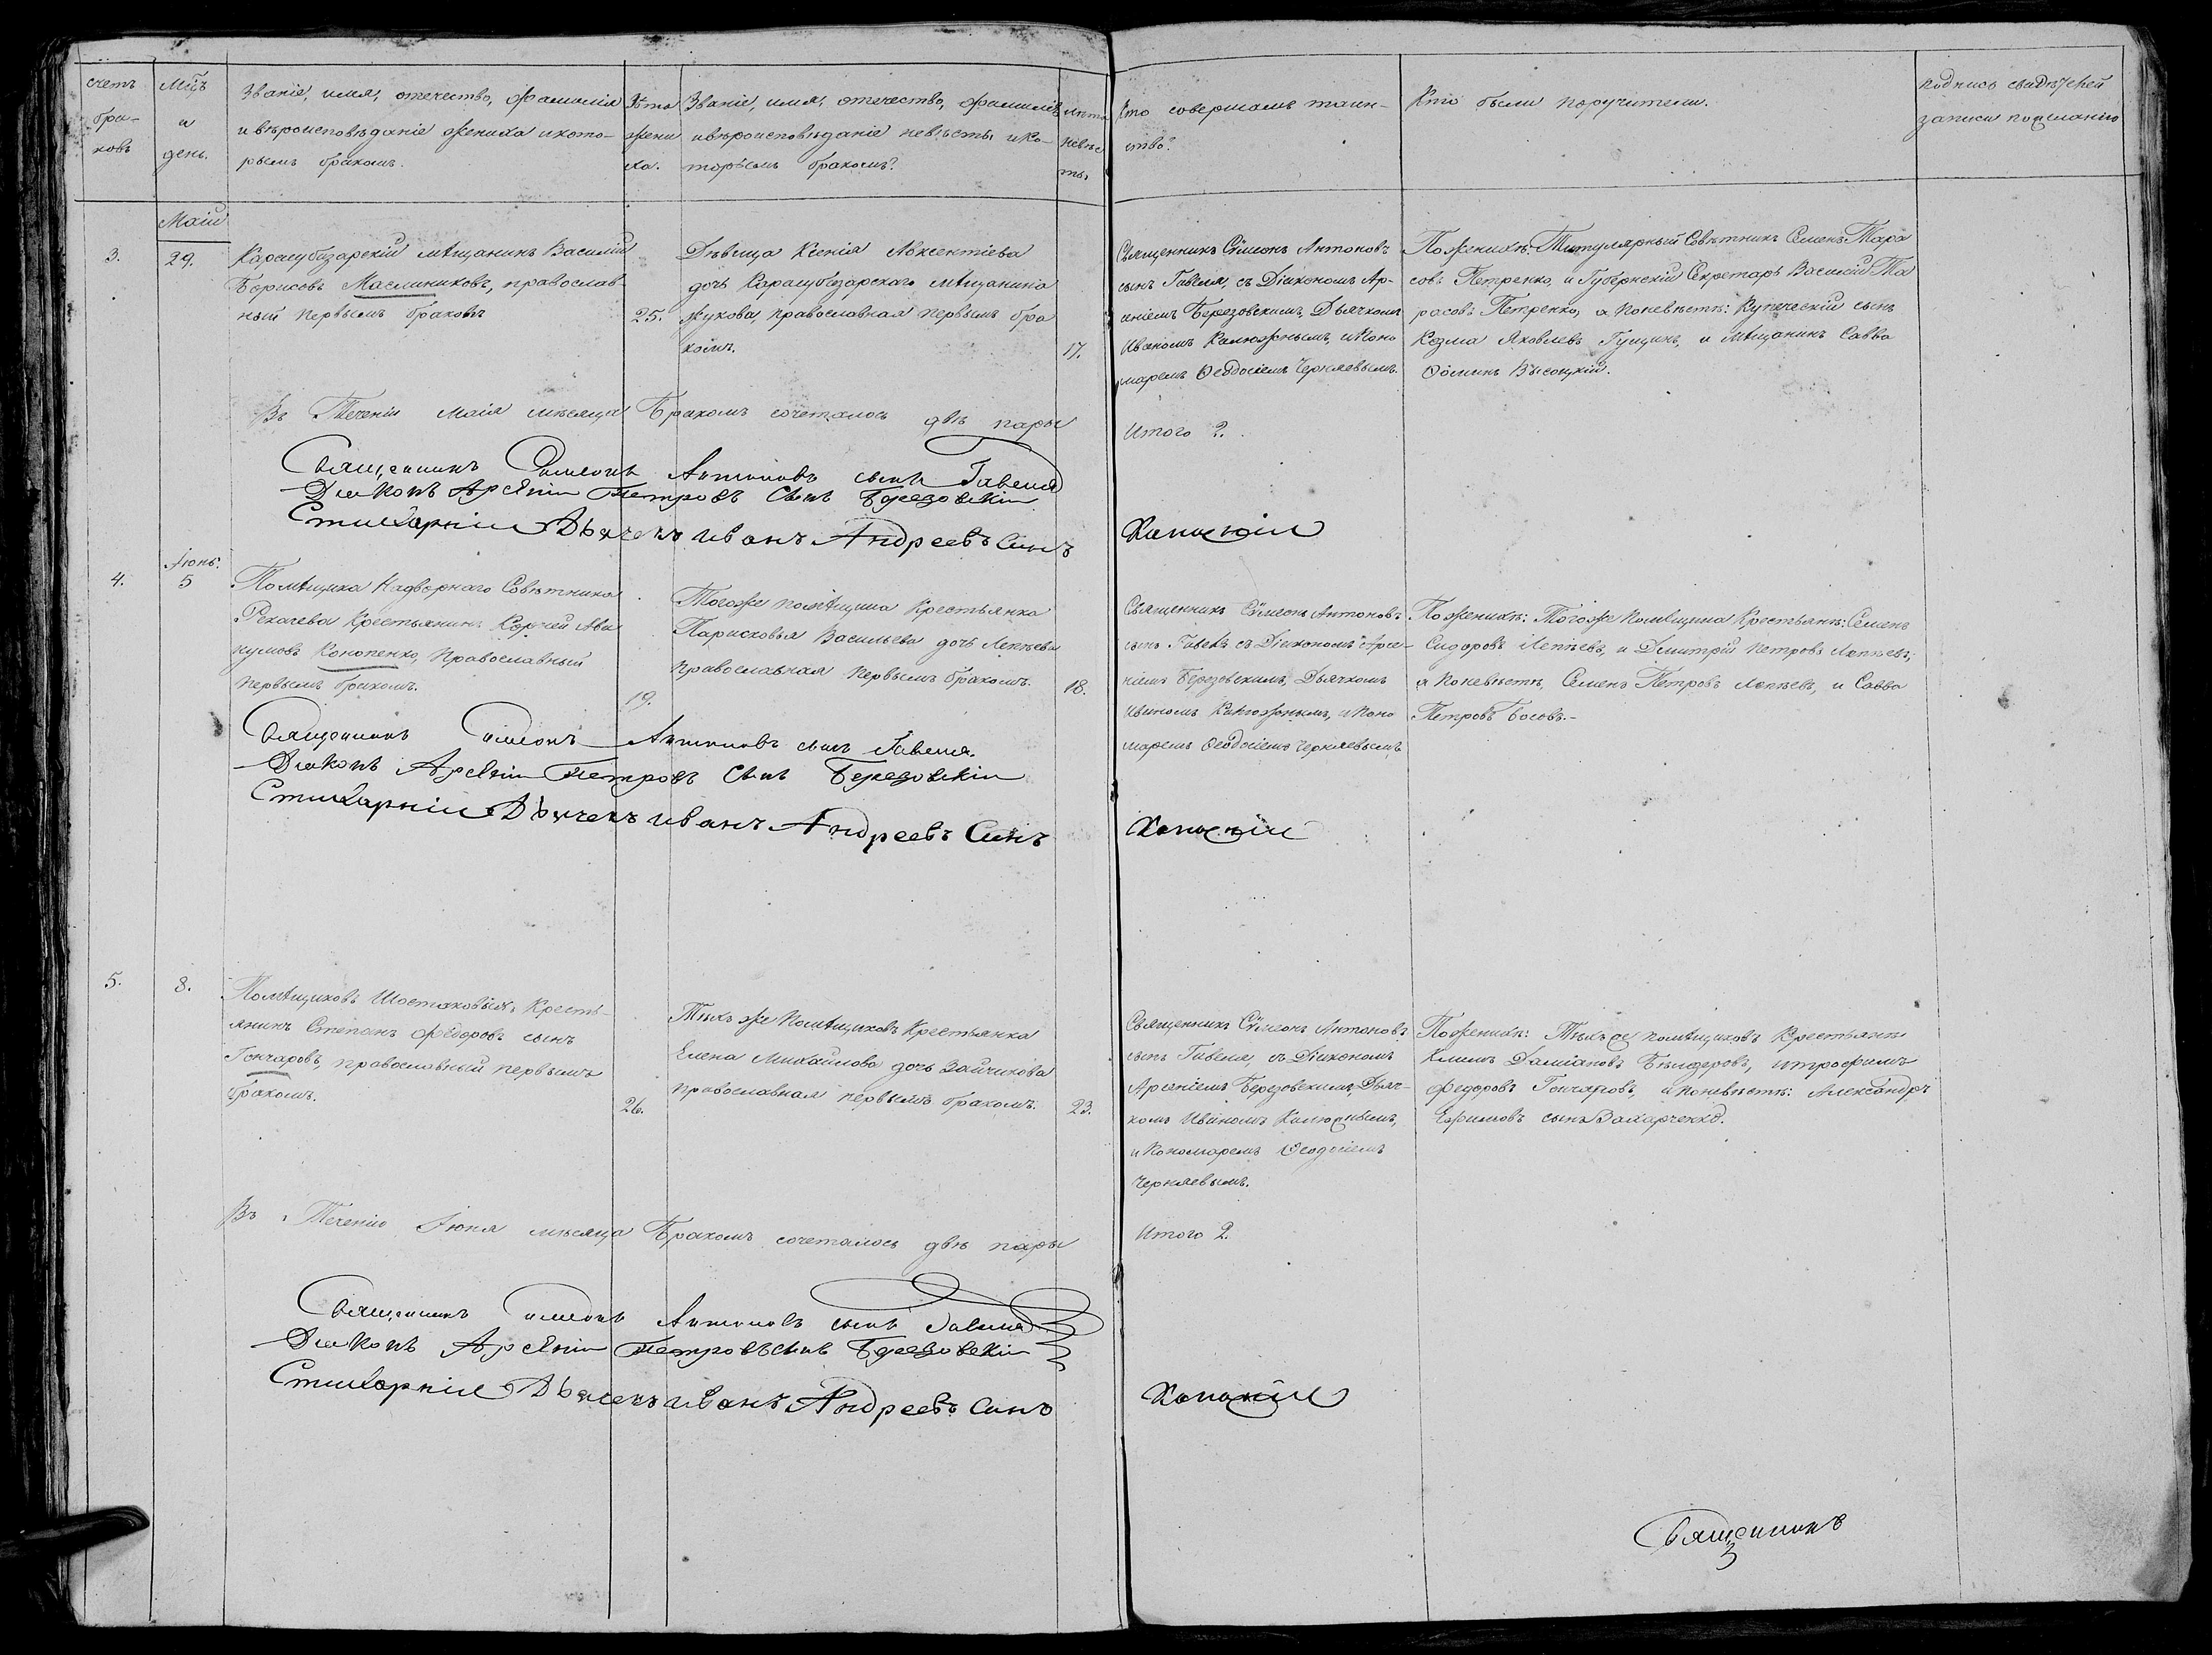 счетъ
бра-
ковъ
Мцъ
и
день.
Званіе, имя, отечество, фамилія
и вѣроисповѣданіе жениха и кото-
рымъ бракомъ.
Лѣта
жени
ха.
Званіе, имя, отечество, фамилія
и вѣроисповѣданіе невѣсты и ко-
торымъ бракомъ?
лѣта
невѣс
ты.
Кто совершалъ таин-
ство?
Кто были поручители.
подпись свидѣтелей
записи по желанію
Маій
3.
29.
Карасубазарскій мѣщанинъ Василій
Борисовъ Маслиниковъ, православ-
ный первымъ бракомъ
25.
Дѣвица Ксенія Авксентіева
дочь Карасубазарскаго мѣщанина
Жукова, православная первымъ бра
комъ.
17.
Священникъ Сѵмеонъ Антоновъ
сынъ Гавеля, съ Діакономъ Ар-
сеніемъ Березовскимъ, Дьячкомъ
Иваномъ Калюжнымъ, и Поно
маремъ Ѳеодосіемъ Черняевымъ.
По женихѣ: Титулярный Совѣтникъ Семенъ Тара
совъ Петренко, и Губернскій Секретарь Василій Та
расовъ Петренко, а по невѣстѣ: Купеческій сынъ
Козма Яковлевъ Гущинъ, и мѣщанинъ Савва
Ѳоминъ Высоцкій.
Въ Теченіи Маія мѣсяца Бракомъ сочеталось двѣ пары
Итого 2.
Священникъ Симеонъ Антоновъ сынъ Гавеля
Діаконъ Арсеній Петровъ сынъ Березовскій
Стихарній Дьячекъ Иванъ Андреевъ Синъ
Іюнь.
4.
5
Помѣщика Надворнаго Совѣтника
Рекачева Крестьянинъ Сергей Ава
кумовъ Кононенко, Православный
первымъ бракомъ.
19.
Тогоже помѣщика Крестьянка
Парисковья Васильева дочь Лепѣева
православная первымъ бракомъ.
18.
Священникъ Сѵмеонъ Антоновъ
сынъ Гавеля съ Діакономъ Арсе-
ніемъ Березовскимъ, Дьячкомъ
Иваномъ Калюжнымъ, и Поно
маремъ Ѳеодосіемъ Черняевымъ
По женихѣ: Тогоже Помѣщика Крестьянѣ: Семенъ
Сидоровъ Лепѣевъ, и Димитрій Петровъ Лепѣевъ,
а по невѣстѣ, Семенъ Петровъ Лепѣевъ, и Савва
Петровъ Босовъ.-
Священникъ Симеонъ Антоновъ сынъ Гавеля.
Діаконъ Арсеній Петровъ сынъ Березовскій
Стихарній Дьячекъ Иванъ Андреевъ Синъ
5.
8.
Помѣщиковъ Шостаковыхъ Кресть-
янинъ Степанъ Федоровъ сынъ
Гончаровъ, православный первымъ
бракомъ.
26.
Тѣхъ же Помѣщиковъ Крестьянка
Елена Михайлова дочь Зайчикова
православная первымъ бракомъ.
23.
Священникъ Сѵмеонъ Антоновъ
сынъ Гавеля, съ Діакономъ
Арсеніемъ Березовскимъ, Дьяч-
комъ Иваномъ Калюжнымъ,
и Пономаремъ Ѳеодосіемъ
Черняевымъ.
По женихѣ: Тѣхъ же помѣщиковъ Крестьяне
Климъ Даміановъ Бендеровъ, и Трофимъ
Федоровъ Гончаровъ, а по невѣстѣ: Александръ
Ефимовъ сынъ Захарченко.
Въ Теченіе Іюня мѣсяца Бракомъ сочеталось двѣ пары
Итого 2.
Священникъ Симеонъ Антоновъ сынъ Гавеля
Діаконъ Арсеній Петровъ сынъ Березовскій
Стихарній Дьячекъ Иванъ Андреевъ Синъ
Священникъ